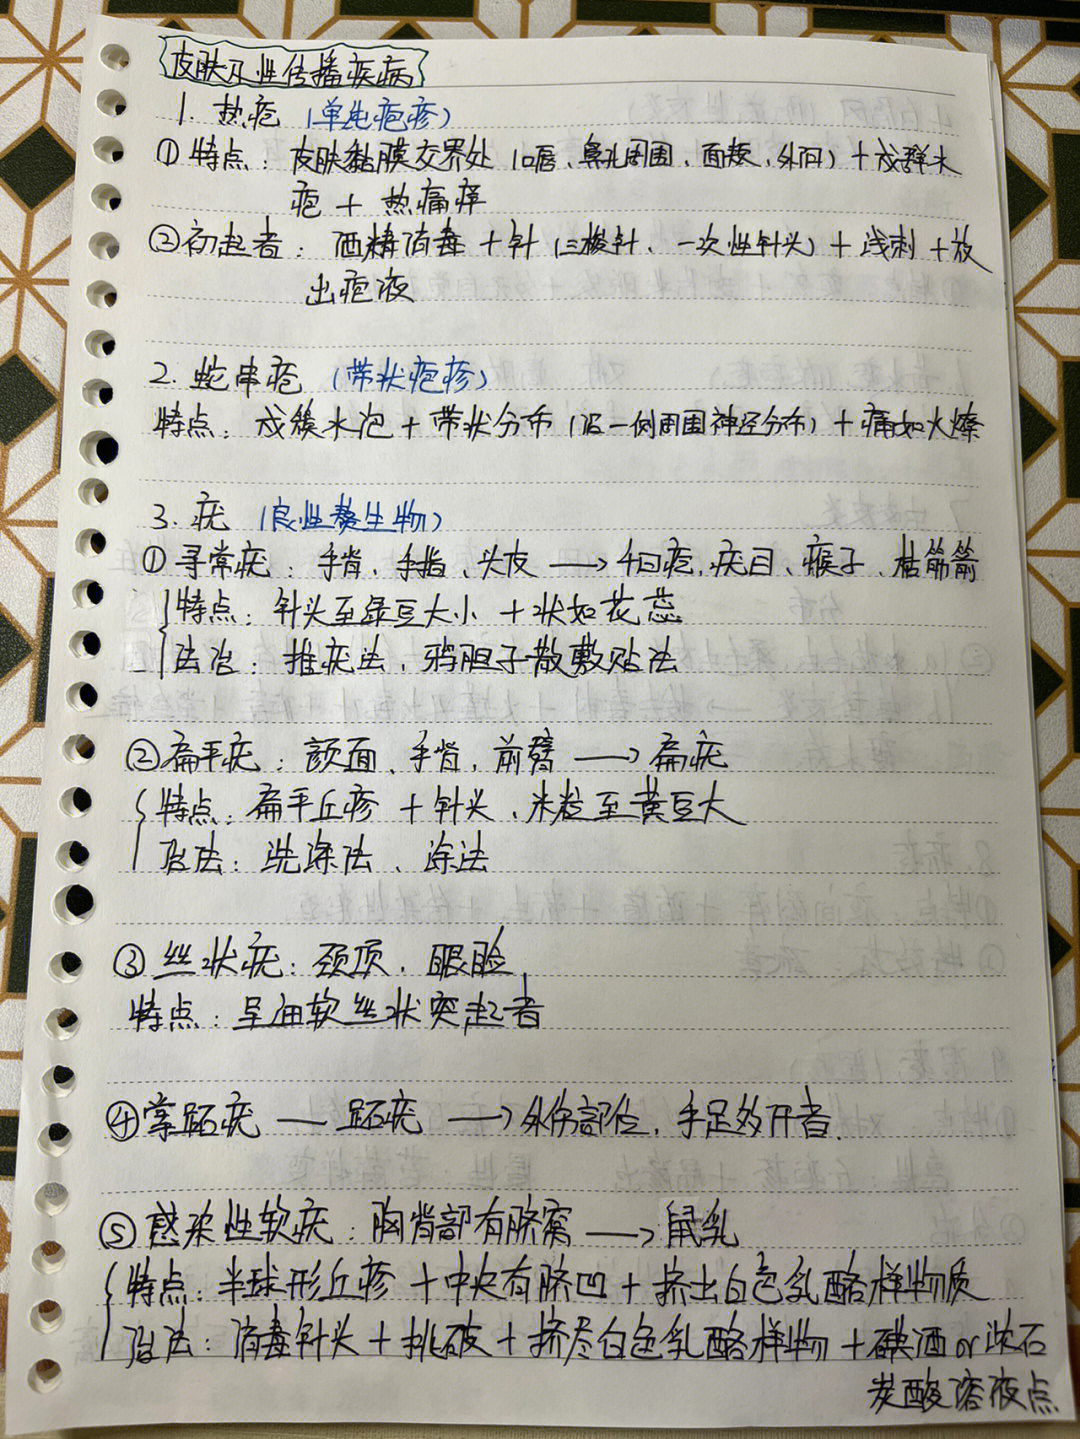 皮肤及性传播疾病
1. 热疮（单纯疱疹）
①特点：皮肤黏膜交界处（口唇、鼻孔周围、面颊、外阴）+成群水
疱+热痛痒
②初起者：酒精消毒+针（三棱针、一次性针头）+浅刺+放
出疱液
2. 蛇串疮（带状疱疹）
特点：成簇水泡+带状分布（沿一侧周围神经分布）+痛如火燎
3. 疣（良性赘生物）
①寻常疣：手背、手指、头皮→千日疮、疣目、瘊子、枯筋箭
特点：针头至绿豆大小+状如花蕊
法治：推疣法、鸦胆子散敷贴法
②扁平疣：颜面、手背、前臂→扁疣
特点：扁平丘疹+针头、米粒至黄豆大
治法：洗涤法、涂法
③丝状疣：颈项、眼睑
特点：呈细软丝状突起者
④掌跖疣—跖疣→外伤部位、手足多汗者.
⑤感染性软疣：胸背部有脐窝→鼠乳
特点：半球形丘疹+中央有脐凹+挤出白色乳酪样物质
治法：消毒针头+挑破+挤尽白色乳酪样物+碘酒or浓石
炭酸溶液点